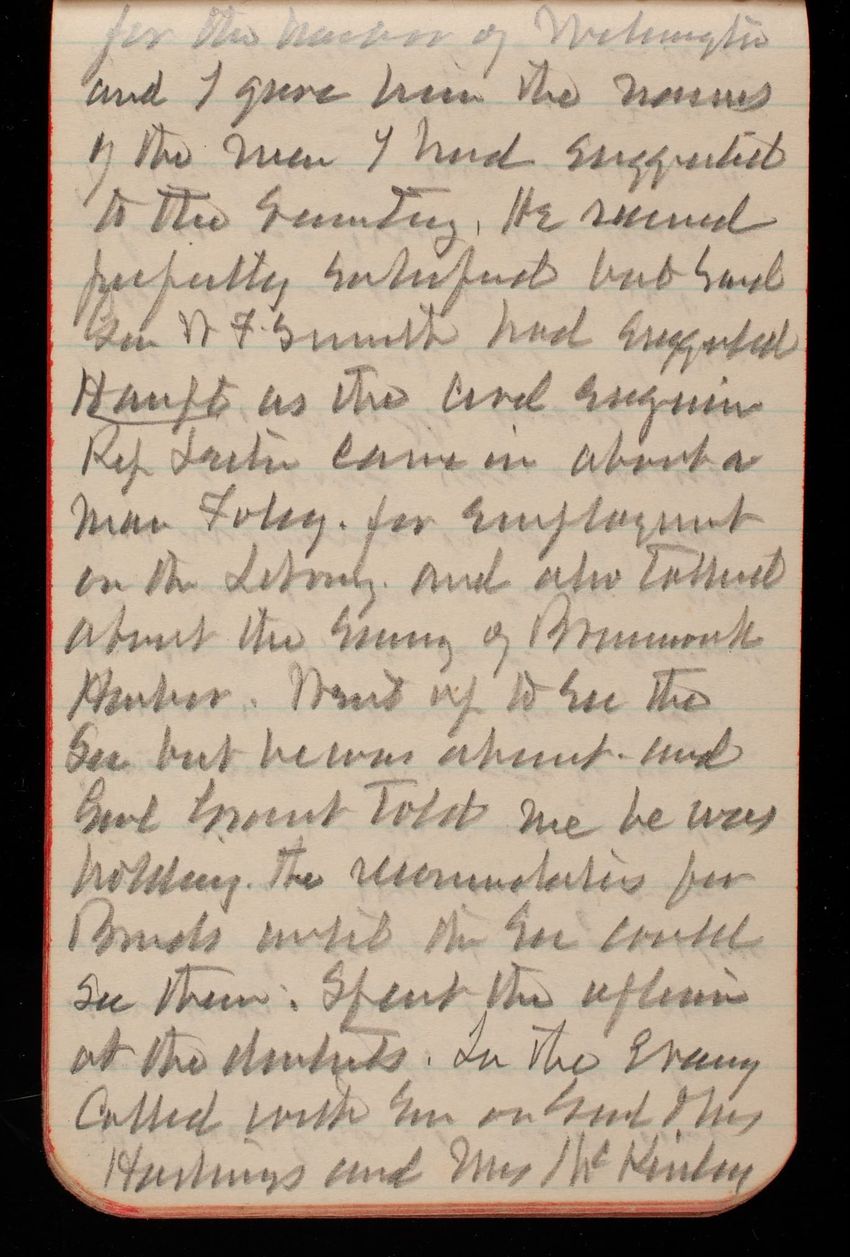 for the harbor of Wilmington
and I gave him the names
of the men I had suggested
to the Secretary. He seemed
perfectly satisfied but said
Gen W F Smith had suggested
Haupt as the Civil Engineer
Rep Lester came in about a
man Foley. for employment
on the Library. and also talked
about the Survey of Brunswick
Harbor. Went up to see the
Sec but he was absent. and
Genl Grant told me he was
holding. the recommendations for
Boards until the Sec could
see them. Spent the
at the dentists. In the Evening
Called with on Genl & Mrs
Hastings and Mrs McKinley